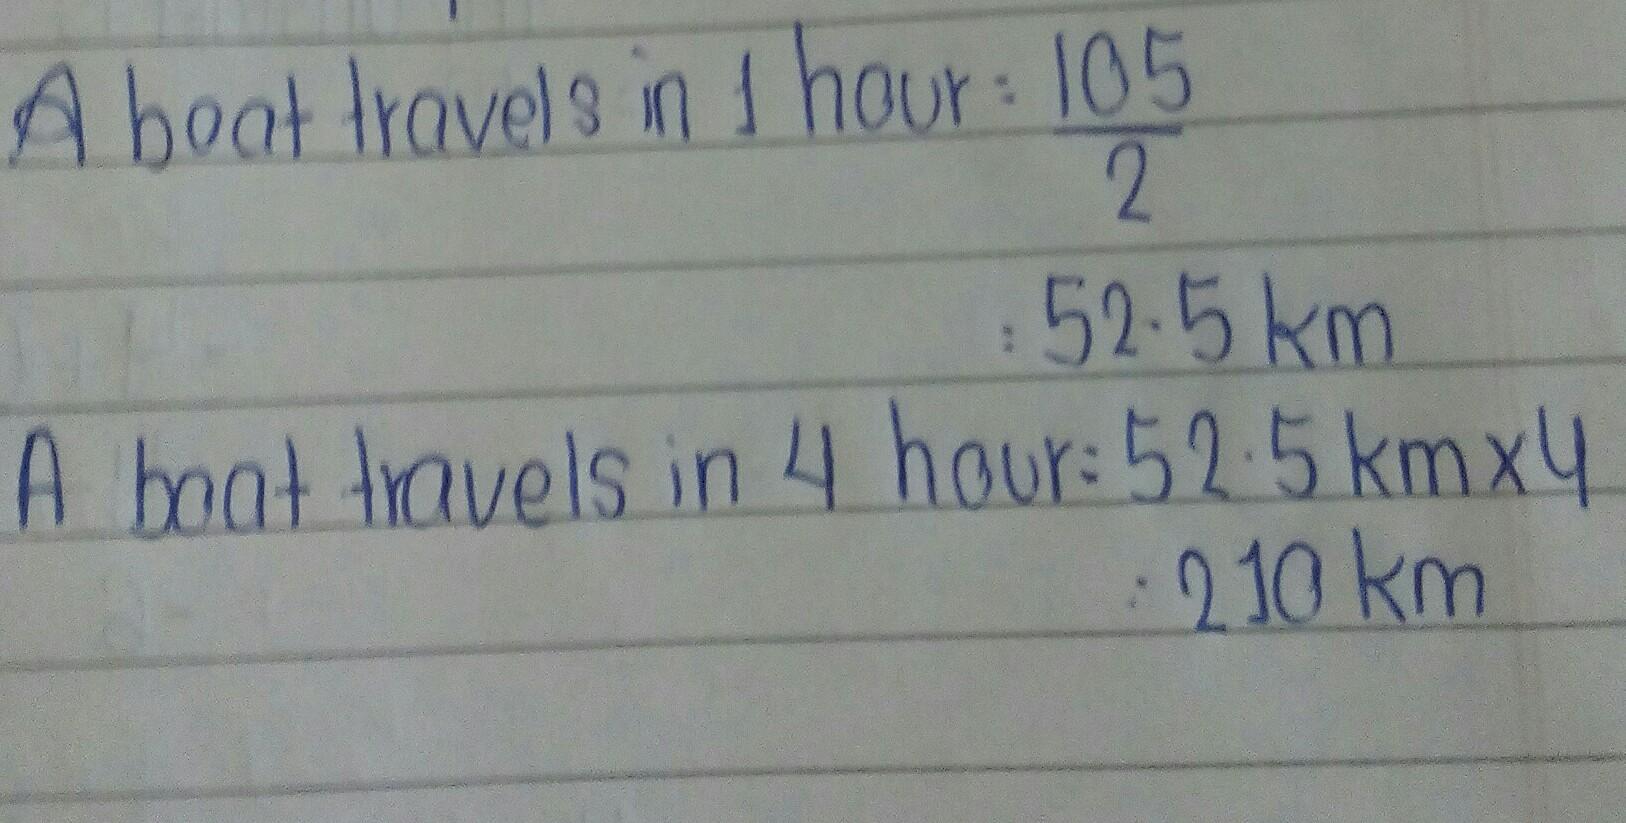 A boat travels in 1 hour = 105
2
= 52.5 km
A boat travels in 4 hour = 52.5 km x 4
= 210 km